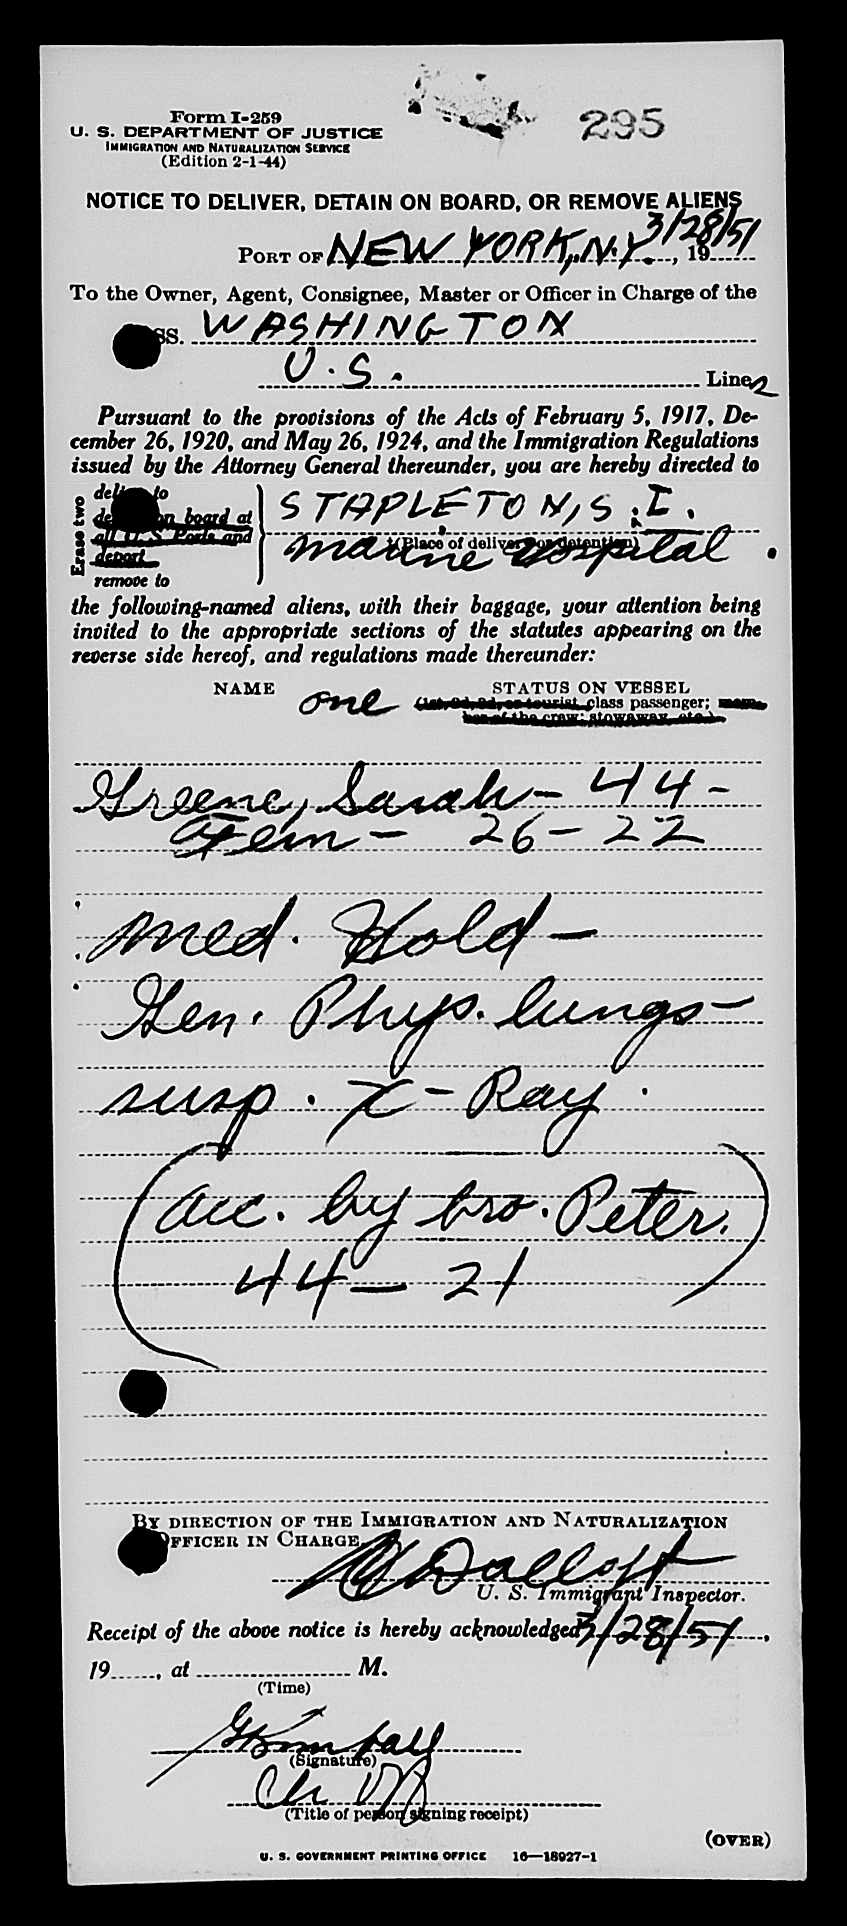 295
Form I-259
U. S. DEPARTMENT OF JUSTICE
IMMIGRATION AND NATURALIZATION SERVICE
(Edition 2-1-44)
NOTICE TO DELIVER, DETAIN ON BOARD, OR REMOVE ALIENS
PORT OF NEW YORK, N.Y. 3/28/51, 19
To the Owner, Agent, Consignee, Master or Officer in Charge of the
SS. WASHINGTON
U.S. Line
Pursuant to the provisions of the Acts of February 5, 1917, De-
cember 26, 1920, and May 26, 1924, and the Immigration Regulations
issued by the Attorney General thereunder, you are hereby directed to
Erase two
deliver to
detain on board at
all U. S. Ports and
deport
remove to
STAPLETON, S.I.
(Place of delivery or detention)
Marine Hospital.
the following-named aliens, with their baggage, your attention being
invited to the appropriate sections of the statutes appearing on the
reverse side hereof, and regulations made thereunder:
NAME one STATUS ON VESSEL
(1st, 2d, 3d, or tourist class passenger; mem-
ber of the crew; stowaway, etc.)
Greene, Sarah - 44 -
Fem - 26 - 22
Med. Hold -
Gen. Phys. lungs -
susp. X-Ray.
(Acc. by bro. Peter.
44 - 21)
BY DIRECTION OF THE IMMIGRATION AND NATURALIZATION
OFFICER IN CHARGE
U. S. Immigrant Inspector.
Receipt of the above notice is hereby acknowledged 3/28/51,
19, at M.
(Time)
(Signature)
(Title of person signing receipt)
(OVER)
U. S. GOVERNMENT PRINTING OFFICE 16—18927-1